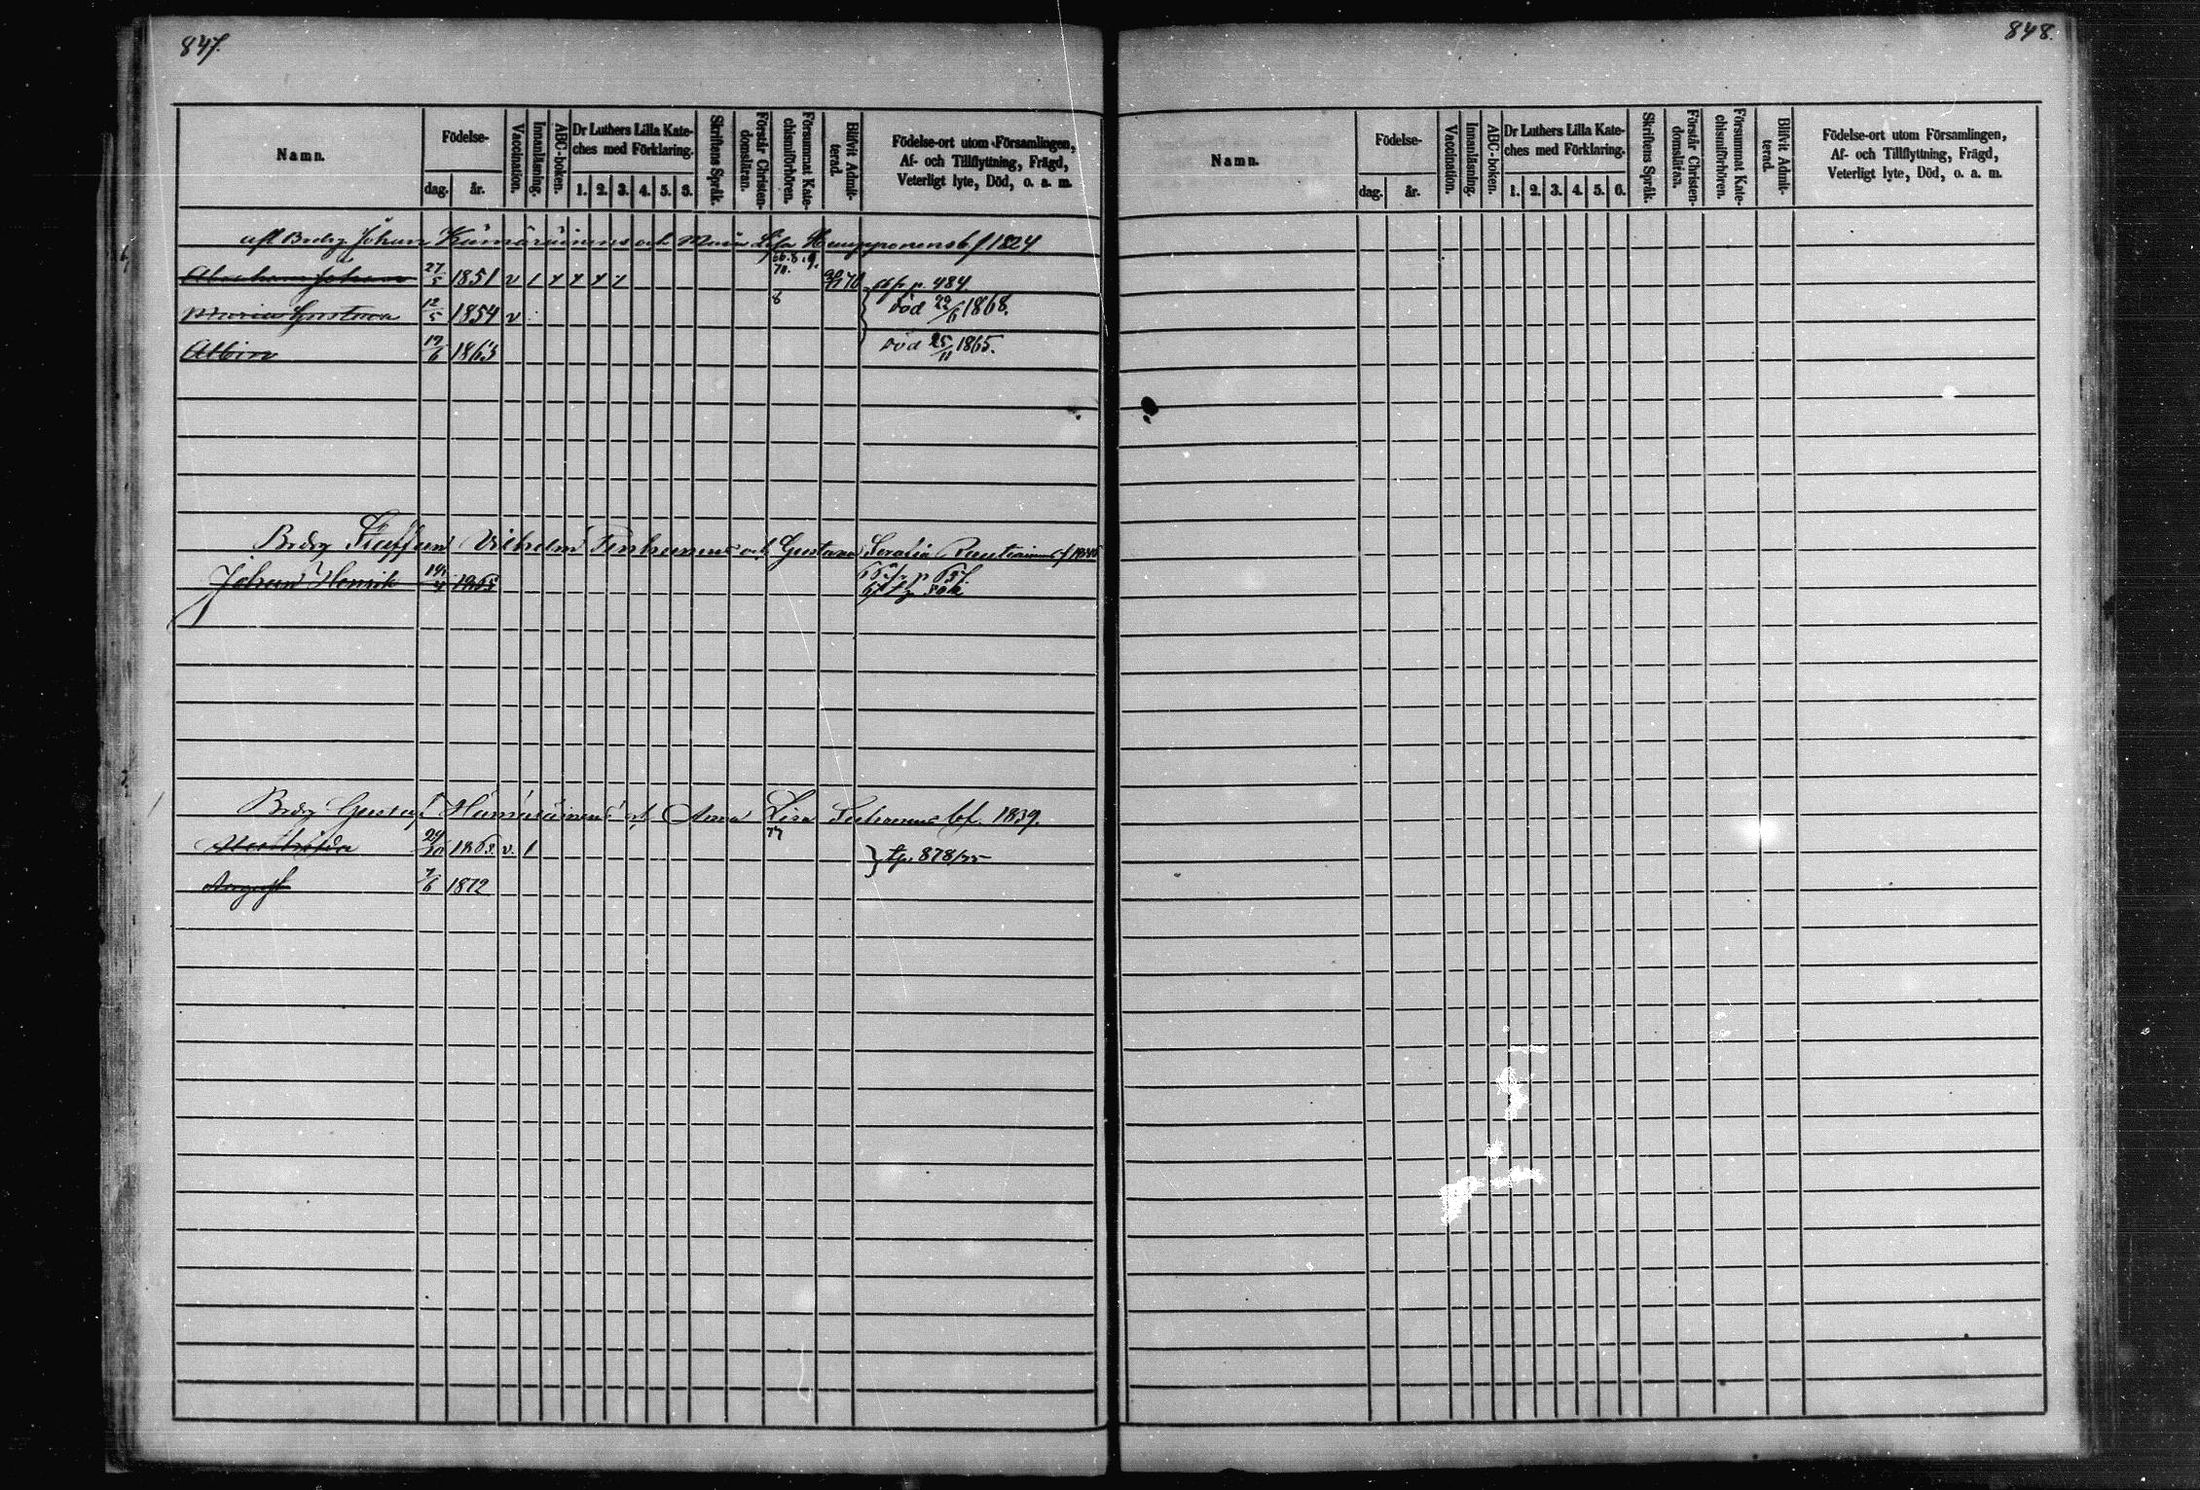 847.
848.
Namn.
Födelse-
dag.
år.
Vaccination.
Innanläsning.
ABC-boken.
Dr Luthers Lilla Kate-
ches med Förklaring.
1. 2. 3. 4. 5. 6.
Skriftens Språk.
Förstår Christen-
domsläran.
Försummat Kate-
chismiförhören.
Blifvit Admit-
terad.
Födelse-ort utom Församlingen,
Af- och Tillflyttning, Frägd,
Veterligt lyte, Död, o. a. m.
afl Bndrg Johan och Maria Lisa f 1824
66. 8. 9.
70.
Abraham Johan 27/5 1851 v 70 p. 484
Maria Gustava 12/5 1854 v 8 död 22/6 1868.
Albin 17/6 1863 död 25/11 1865.
Bndrg Staffan Vilhelm och Gustava Serafia
Johan Henrik 1865 p 657.
Bndrg Gustaf och Anna Lisa bf. 1839.
29/10 1865. v. 1 77 tp. 878/75
August 7/6 1872
Namn.
Födelse-
dag.
år.
Vaccination.
Innanläsning.
ABC-boken.
Dr Luthers Lilla Kate-
ches med Förklaring.
1. 2. 3. 4. 5. 6.
Skriftens Språk.
Förstår Christen-
domsläran.
Försummat Kate-
chismiförhören.
Blifvit Admit-
terad.
Födelse-ort utom Församlingen,
Af- och Tillflyttning, Frägd,
Veterligt lyte, Död, o. a. m.